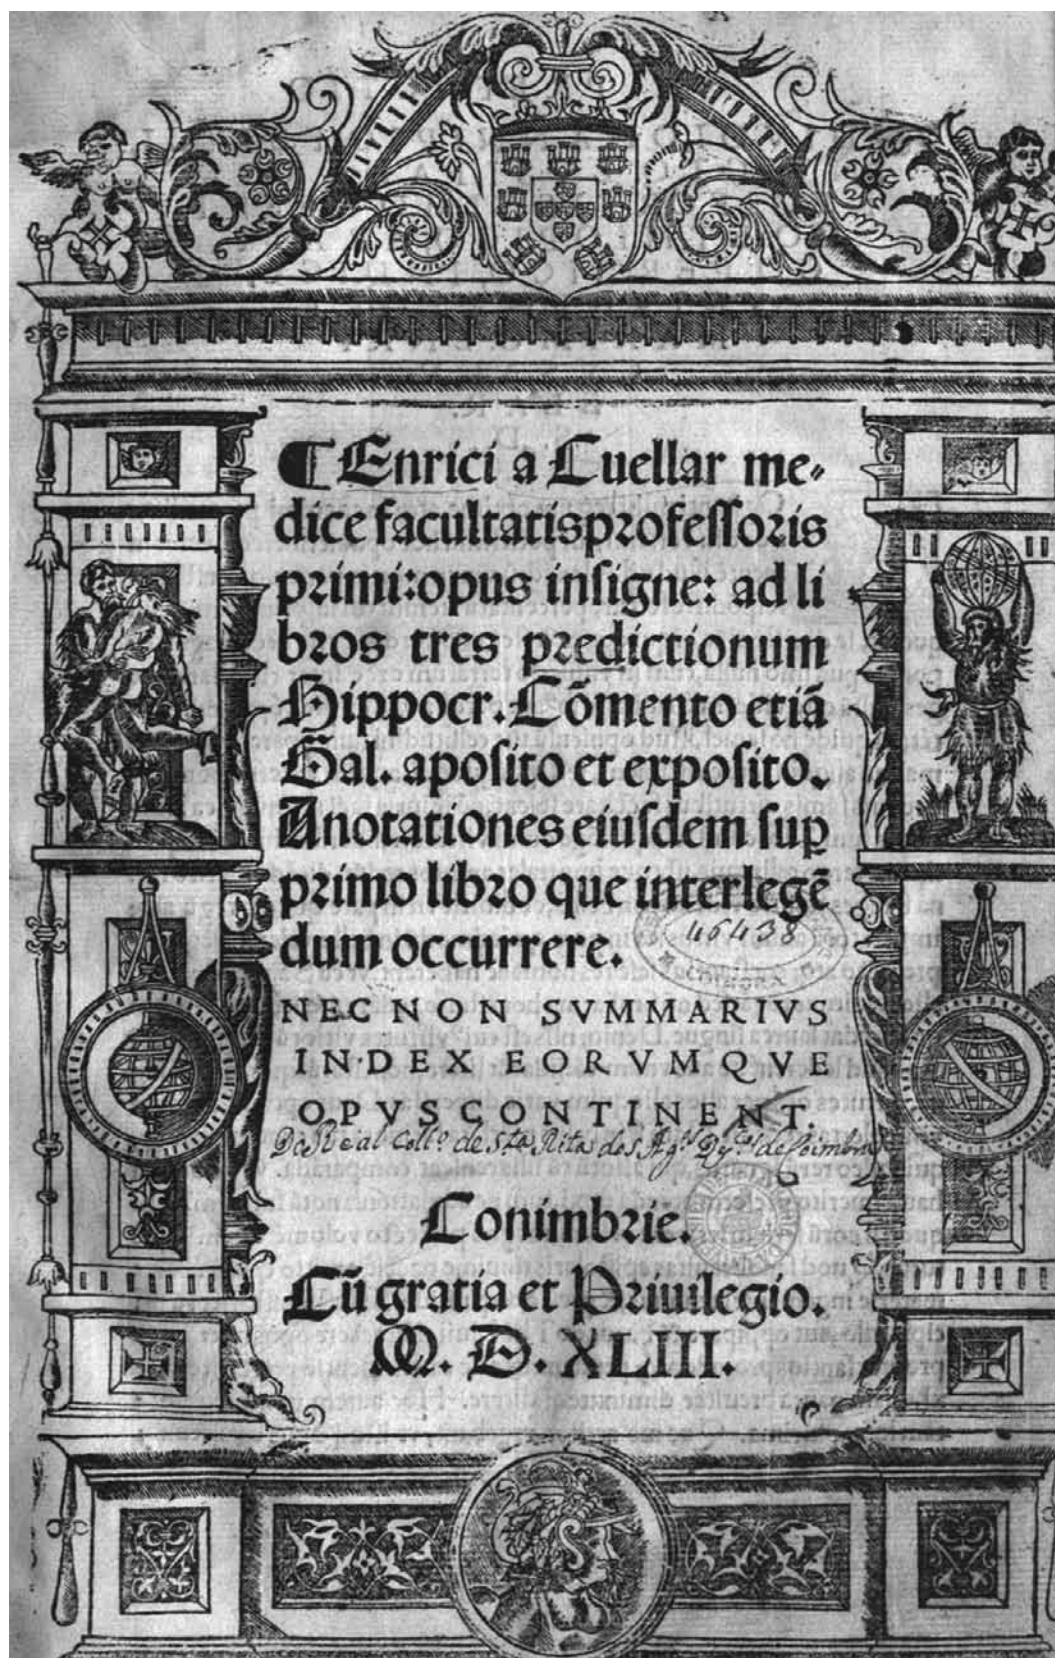 ¶ Enrici a Cuellar me⸗
dice facultatis professoris
primi: opus insigne: ad li
bros tres predictionum
Hippocr. Cõmento etiã
Gal. aposito et exposito.
Anotationes eiusdem sup̱
primo libro que interlegẽ
dum occurrere.
NEC NON SVMMARIVS
INDEX EORVM QVE
OPVS CONTINENT.
46438
Do Real Coll.º de S.ta Rita dos Ag.os
de Coimbra
Conimbrie.
Cũ gratia et Priuilegio.
M. D. XLIII.